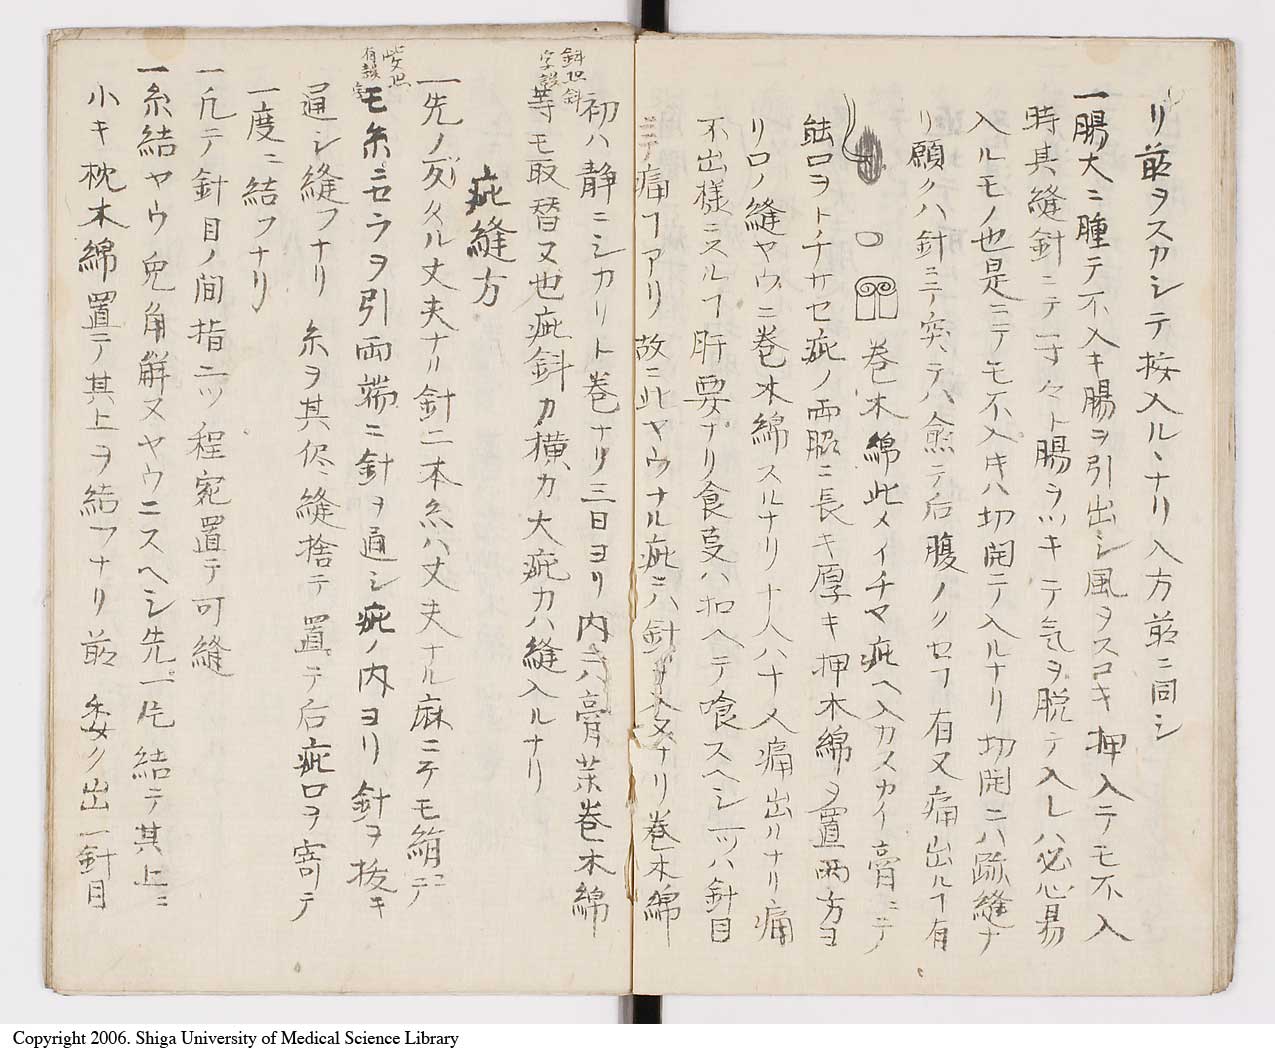 リ前ヲスカシテ按入ルヽナリ入方前ニ同シ
一腸大ニ腫テ不入キ腸ヲ引出シ風ヲスコキ押入テモ不入
時其縫針ニテ一寸々ト腸ヲツキテ気ヲ脱テ入レハ必心易
入ルモノ也是ニテモ不入キハ切開テ入ルナリ切開ニハ跡縫ナ
リ願クハ針ニテ突テハ愈テ后腹ノ有又痛出ルヿ有
巻木綿此メイチマ疵ヘ入カスカイ膏ニテ
ヲトチサセ疵ノ両脇ニ長キ厚キ押木綿ヲ置両方ヨ
リ口ノ縫ヤウニ巻木綿スルナリ十人ハ十人痛出ルナリ痛
不出様ニスルヿ肝要ナリ食ハ扣ヘテ喰スヘシ一ツハ針目
ニテ痛ヿアリ故ニ此ヤウナル疵ニハ針ヲ入又ナリ巻木綿
初ハ静ニシカリト巻ナリ三日ヨリ内ニハ膏茶巻木綿
等モ取替又也疵斜カ横カ大疵カハ縫入ルナリ
疵縫方
一先ノタル丈夫ナル針二本糸ハ丈夫ナル麻ニテモ絹ニテ
モ糸ニセラヲ引両端ニ針ヲ通シ疵ノ内ヨリ針ヲ抜キ
通シ縫フナリ 糸ヲ其侭縫捨テ置テ后疵口ヲ寄テ
一度ニ結フナリ
一凡テ針目ノ間指二ツ程宛置テ可縫
一糸結ヤウ兎角解又ヤウニスヘシ先一凡結テ其上ニ
小キ枕木綿置テ其上ヲ結フナリ前 委ク出一針目
Copyright 2006. Shiga University of Medical Science Library